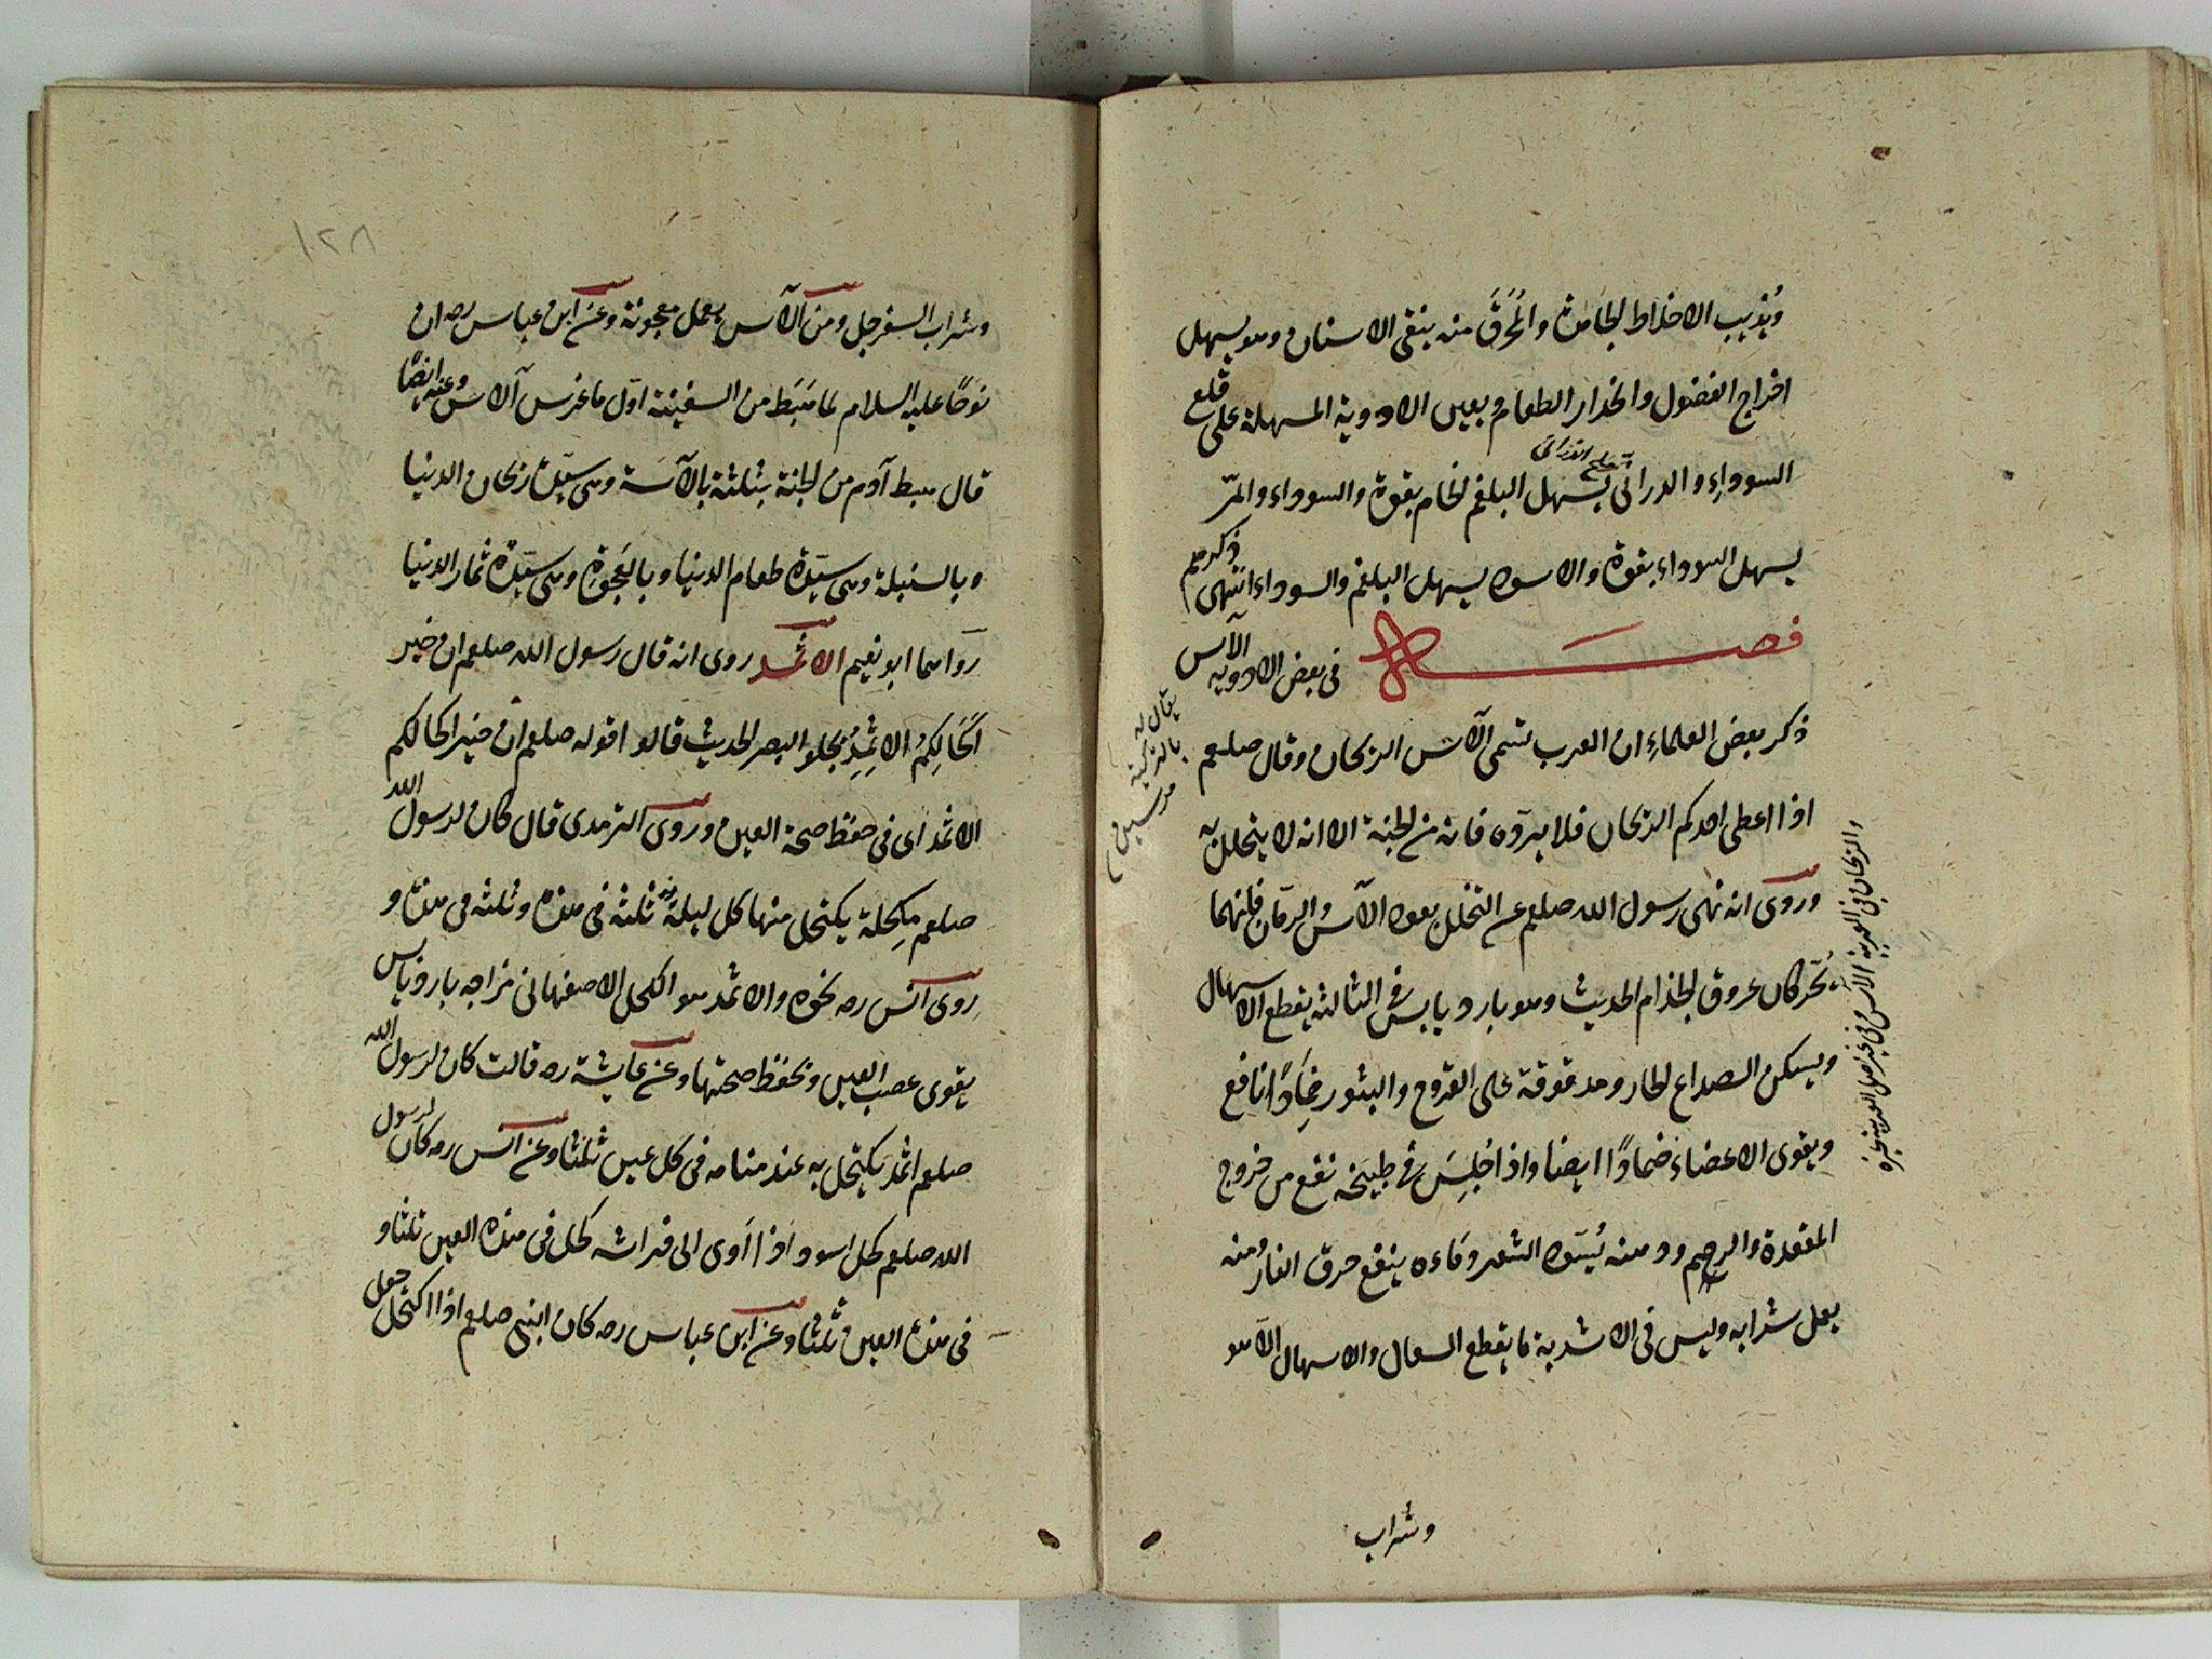 ويُذيب الاخلاط الجامدة والمُحرَق منه ينقى الاسنان وهو يسهل
اخراج الفضول وانحدار الطعام ويعين الادوية المسهلة على قلع
السوداءِ والدرانى يسهل البلغم الخام بقوة والسوداء والمرّ
يسهل السوداء بقوة والاسود يسهل البلغم والسوداء انتهى
فصل
فى بعض الادويه الآس
ذكر بعض العلماءِ ان العرب تسمى الآس الريحان وقال صلعم
اذا اعطى احدكم الريحان فلا يردّه فانه من الجنة الا انه لا يتخلل به
وروى انه نهى رسول الله صلعم عن التخلل بعود الآس والرمّان فانهما
يُحرّكان عروق الجذام الحديث وهو بارد يابس فى الثالثة يقطع الاسهال
ويسكن الصداع الحار ومدقوقة على القروح والبثور ضِمَادًا نافع
ويقوى الاعضاءَ ضمادًا ايضا واذا جُلِسَ فى طبيخه نفع من خروج
المقعدة والرحم ودهنه يُسَوّد الشعر وماءه ينفع حرق النار ومنه
يعمل شرابه وليس فى الاشربة ما يقطع السعال والاسهال الا هو
وشراب
يقال له
بالتركية
مرسين
والريحان فى العربية الآس وفى غير اهل العربية غيره
١٢٨
وشراب السفرجل ومن الآس يعمل معجونة وعن ابن عباس رضـ ان
نوحًا عليه السلام لما هَبَط من السفينة اوّل ما غرس آلاس وعنه ايضًا
قال هبط آدم من الجنة بثلثة بالآسَة وهى سيّدة ريحان الدنيا
وبالسنبلة وهى سيّدة طعام الدنيا وبالعَجوَةِ وهى سيّدة ثمار الدنيا
رواهما ابو نعيم الاثمد روى انه قال رسول الله صلعم ان خير
اكْحَالِكُمُ الاثمِدِ يجلو البصر الحديث قالوا قوله صلعم ان خير اكحالكم
الاثمد اى فى حفظ صحة العين وروى الترمدى قال كان لرسول الله
صلعم مِكحلة يكتحل منها كل ليلة ثلثة فى هذه وثلثه فى هذه و
روى انس رضـ نحوه والاثمد هو الكحل الاصفهانى مزاجه بارد يابس
يقوى عصب العين ويحفظ صحتها وعن عايشة رضـ قالت كان لرسول الله
صلعم اثمد يكتحل به عند منامه فى كل عين ثلثا وعن انس رضـ كان لرسول
الله صلعم كحل اسود اذا اَوى الى فراشه كحل فى هذه العين ثلثا و
فى هذه العين ثلثا وعن ابن عباس رضـ كان النبى صلعم اذا اكتحل جعل